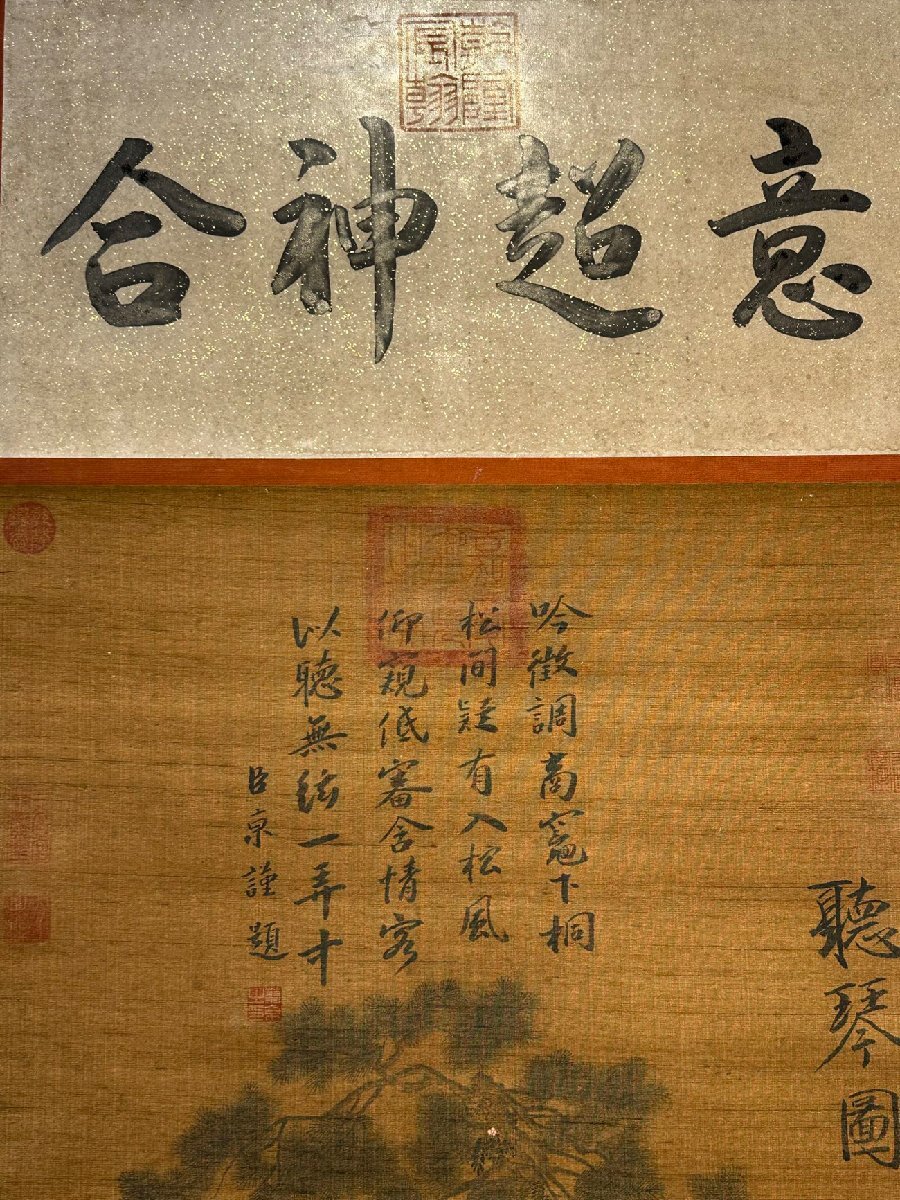 意超神合
吟徵調商竈下桐
松間疑有入松風
仰窺低審含情客
以聽無弦一弄中
臣京謹題
聽琴圖